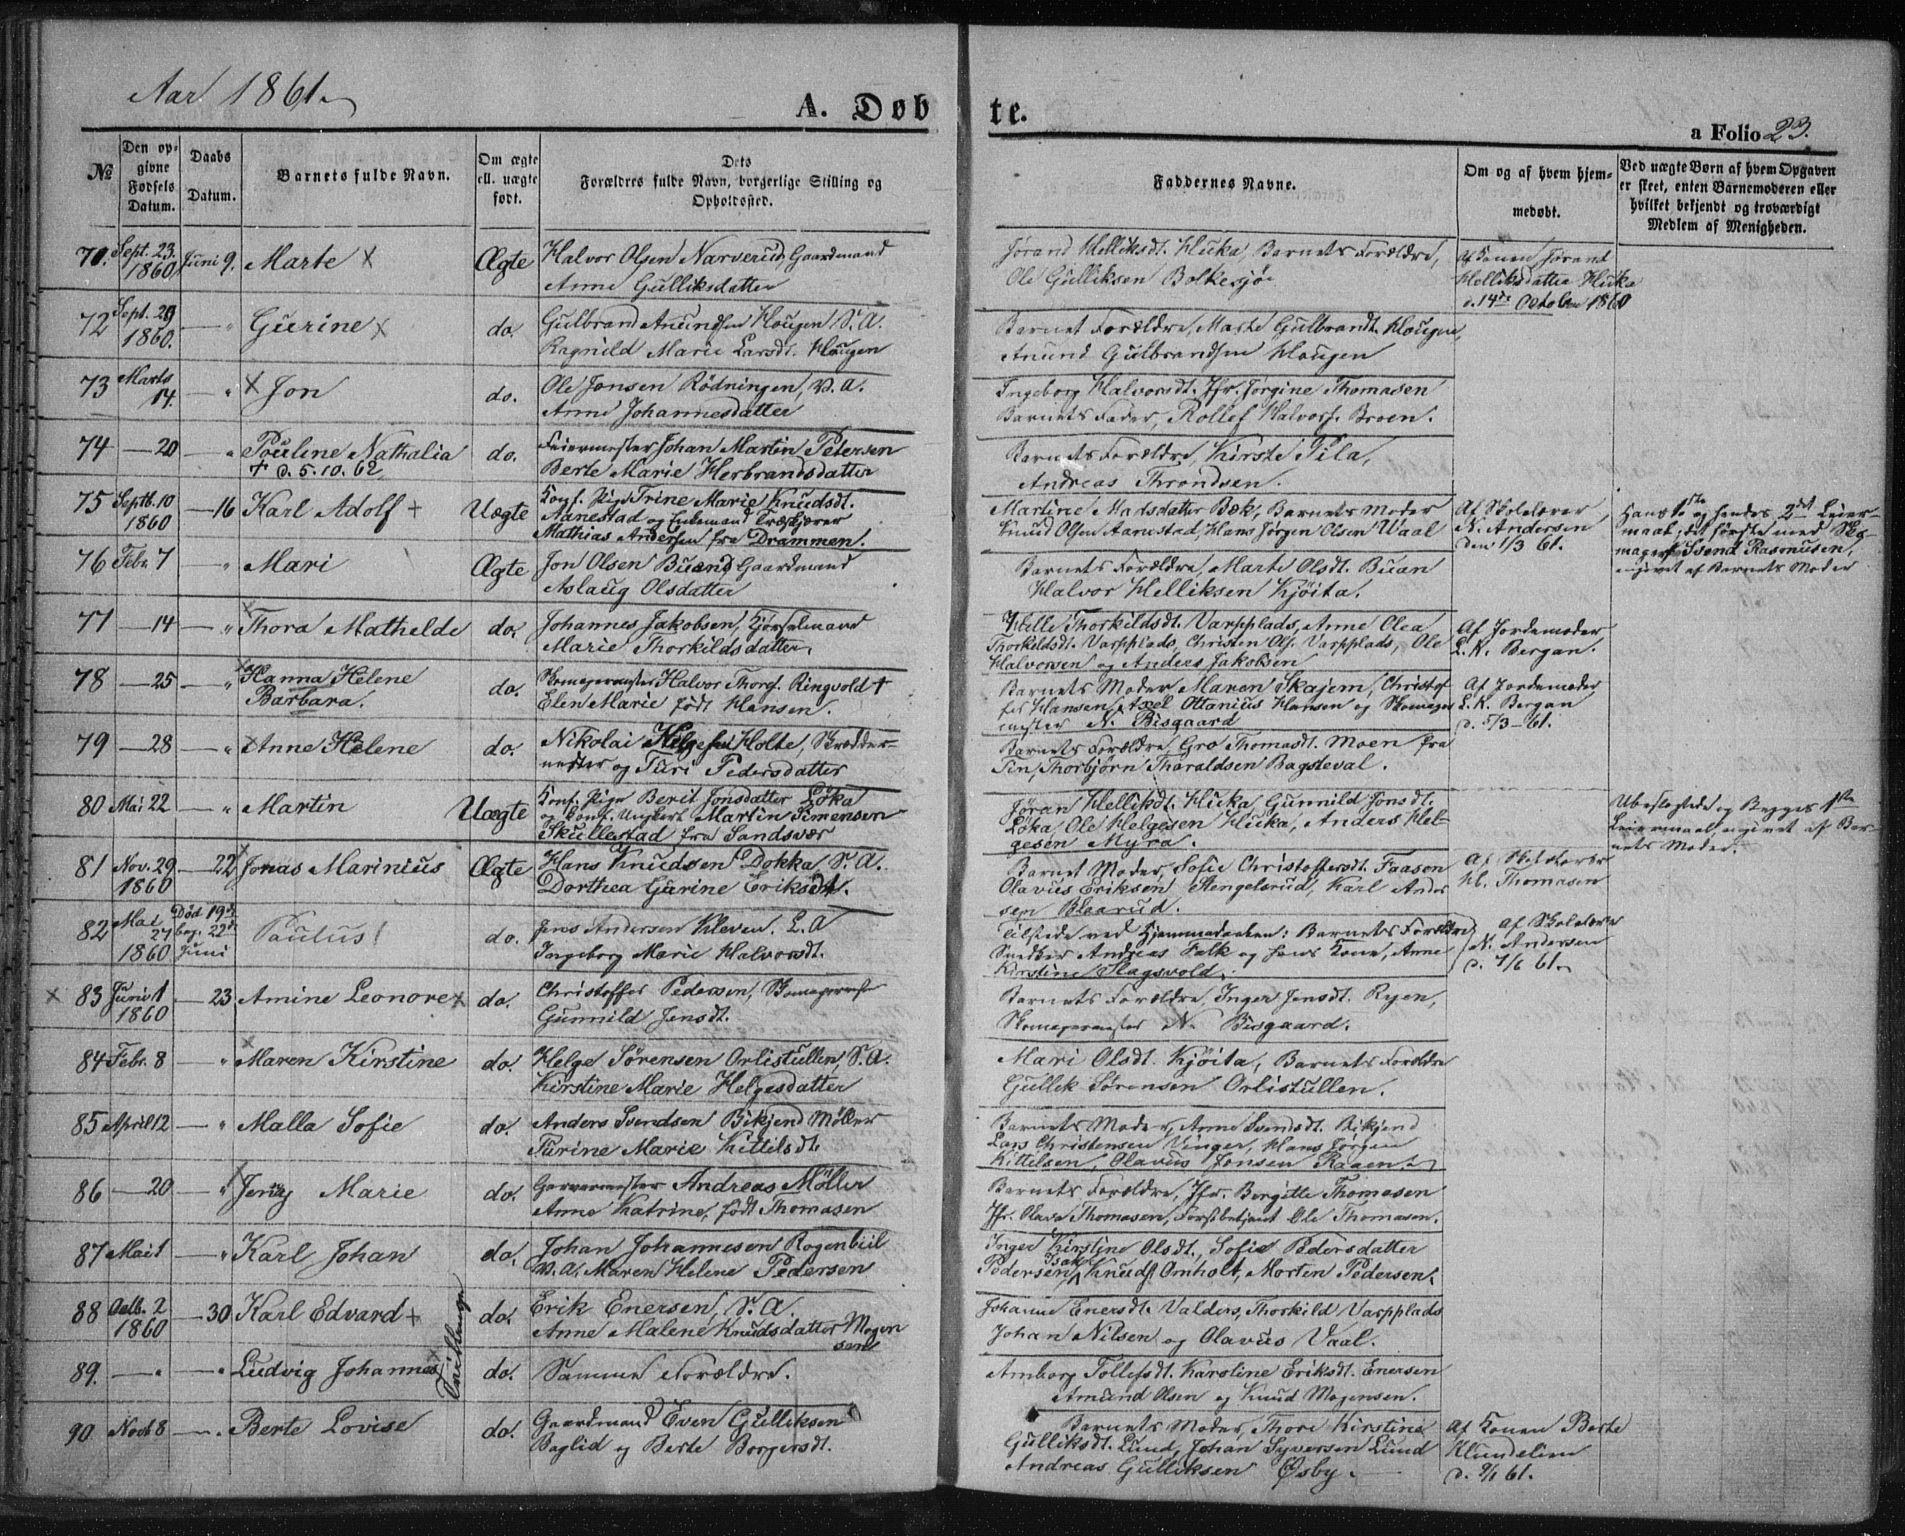 Aar 1861.
A. Døbte.
a Folio 23.
№
Den opgivne Fødsels Datum.
Daabs Datum.
Barnets fulde Navn.
Om ægte ell. uægte født.
Dets Forældres fulde Navn, borgerlige Stilling og Opholdssted.
Faddernes Navne.
Om og af hvem hjemmedøbt.
Ved uægte Børn af hvem Opgaven er skeet, enten Barnemoderen eller hvilket bekjendt og troværdigt Medlem af Menigheden.
71. Sept. 23. 1860 Juni 9. Marte × Ægte Halvor Olsen Narverud, Gaardmand
Anne Gulliksdatter
Jørand Helliksdt. Huka, Barnets Forældre,
Ole Gulliksen Bolkesjø
Af Konen Jørand
Helliksdatter Huka
d. 14de October 1860
72 Sept. 29 1860. — " Gurine × do. Gulbrand Anundsen Hougen S. A.
Ragnild Marie Larsdt. Hougen
Barnets Forældre, Marte Gulbrandt. Hougen,
Anund Gulbrandsen Hougen
73 Marts 14. — " × Jon do. Ole Jonsen Rödningen, V. A.
Anne Johannesdatter
Ingeborg Halvorsdt. Jfr. Jorgine Thomasen
Barnets Fader, Rollef Halvors. Broen.
74 — 20 " Pouline Nathalia do. Feiermester Johan Martin Petersen
† d. 5.10.62
Berte Marie Herbrandsdatter
Barnets Forældre, Kirste Pila,
Andreas Throndsen.
75 Septb. 10 1860 — 16 Karl Adolf + Uægte Konf. Pige Trine Marie Knudsdt.
Aanestad og Enkemand Træskjærer
Mathias Andersen fra Drammen.
Martine Madsdatter Bæk, Barnets Moder
Knud Olsen Aanestad, Hans Jörgen Olsen Waal
Af Skolelærer
N. Andersen
den 1/3 61.
Hans 1ste og hendes 2det Leiermaal; det første med Skomager Svend Rasmusen,
angivet af Barnets Moder
76 Febr. 7 " Mari Ægte Jon Olsen Buand Gaardmand
Aslaug Olsdatter
Barnets Forældre, Marte Olsdt. Buan
Halvor Helliksen Kjöita.
77 — 14 — " × Thora Mathelde do. Johannes Jakobsen, Kjörselmand
Marie Thorkildsdatter
Thorkildsdt. Varpplads, Anne Olea
Thorkildsdt. Varpplads, Christen Ols. Varpplads, Ole
Halvorsen og Anders Jakobsen
Af Jordemoder
L. K. Bergan.
78 — 25 — " × Hanna Helene
Barbara. do. Skomagermester Halvor Thorgs. Ringvold †
Elen Marie født Hansen.
Barnets Moder Maren Skajem, Christoffer Hansen, Axel Ottanius Hansen og Skomagermester N. Bisgaard
Af Jordemoder
L. K. Bergan
d. 5/3 - 61.
79 — 28 — " × Anne Helene do. Nikolai Helgesen Holte, Skræddermester og Turi Pedersdatter
Barnets Forældre, Gro Thomasdt. Moen fra
Tin, Thorbjörn Tharaldsen Bagsteval.
80 Mai 22 — " Martin Uægte Konf. Pige Berit Jonsdatter Löka
og Konf. Ungkarl Martin Simensen
Skullestad, fra Sandsvær
Jöran Hellikdt. Huka, Gunnild Jonsdt.
Löka, Ole Helgesen Huka, Anders Helgesen Myra.
Ubeslægtede og Begges 1ste
Leiermaal, angivet af Barnets Moder.
81 Nov. 29 1860 — 22 × Jonas Marinius Ægte Hans Knudsen Dokka, S. A.
Dorthea Gurine Eriksdt.
Barnet Moder, Sofie Christoffersdt. Faasen
Olavus Eriksen Stengelsrud, Karl Andersen Blaarud.
Af Skolelærer
Kl. Thomasen
82 Mai 27 1860 Død 19de beg. 22de Juni Paulus! do. Jens Andersen Kleven. L. A
Ingeborg Marie Halvorsdt.
Tilstede ved Hjemmedaaben: Barnets Forældre
Snedker Andreas Falk og hans Kone, Anne
Kirstine Slagsvold.
Af Skolelærer
N. Andersen
d. 7/6 61.
× 83 Juni 1 1860 — 23 Amine Leonore × do. Christoffer Pedersen, Skomagermester
Gunnild Jensdt.
Barnets Forældre, Inger Jensdt. Ryen,
Skomagermester N. Bisgaard.
84 Febr. 8 " × Maren Kirstine do. Helge Sörensen Orlistullen, S. A.
Kirstine Marie Helgesdatter
Mari Olsdt. Kjöita, Barnets Forældre
Gullik Sörensen Orlistullen.
85 April 12 — " Malla Sofie do. Anders Svendsen Bikjend Möller
Turine Marie Kittilsdt.
Barnets Moder, Anne Svendsdt. Bikjend
Lars Christensen Vinger, Hans Jörgen
Kittelsen, Olavus Jonsen Raaen.
86 — 20 " Jeny Marie do. Garvermester Andreas Möller
Anne Katrine, født Thomasen
Barnets Forældre, Jfr. Bergitte Thomasen
Jfr. Olava Thomasen, Forstbetjent Ole Thomasen.
87 Mai 1 — " Karl Johan do. Johan Johannesen Rogenbiil
V. A. Maren Helene Pedersen
Inger Kirstine Olsdt., Sofie Pedersdatter
Pedersen, Isak Knuds. Omholt, Morten Pedersen.
88 Octb. 2 1860 — 30 Karl Edvard + do. Erik Enersen, S. A.
Anne Malene Knudsdatter Mogensen
Tvillinger
Johanne Enersdt. Valders, Thorkild Varpplads
Johan Nilsen og Olavus Vaal.
89. — " " Ludvig Johannes × do. Samme Forældre.
Amborg Tollefsdt. Karoline Eriksdt. Enersen
Amund Olsen og Knud Mogensen.
90 Novb 8 — . Berte Lovise do. Gaardmand Even Gulliksen
Baglid og Berte Borgersdt.
Barnets Moder, Thore Kirstine
Gulliksdt. Lund, Johan Syversen Lund
Andreas Gulliksen Øsby.
Af Konen Berte
Klundelien
d. 9/6 61.